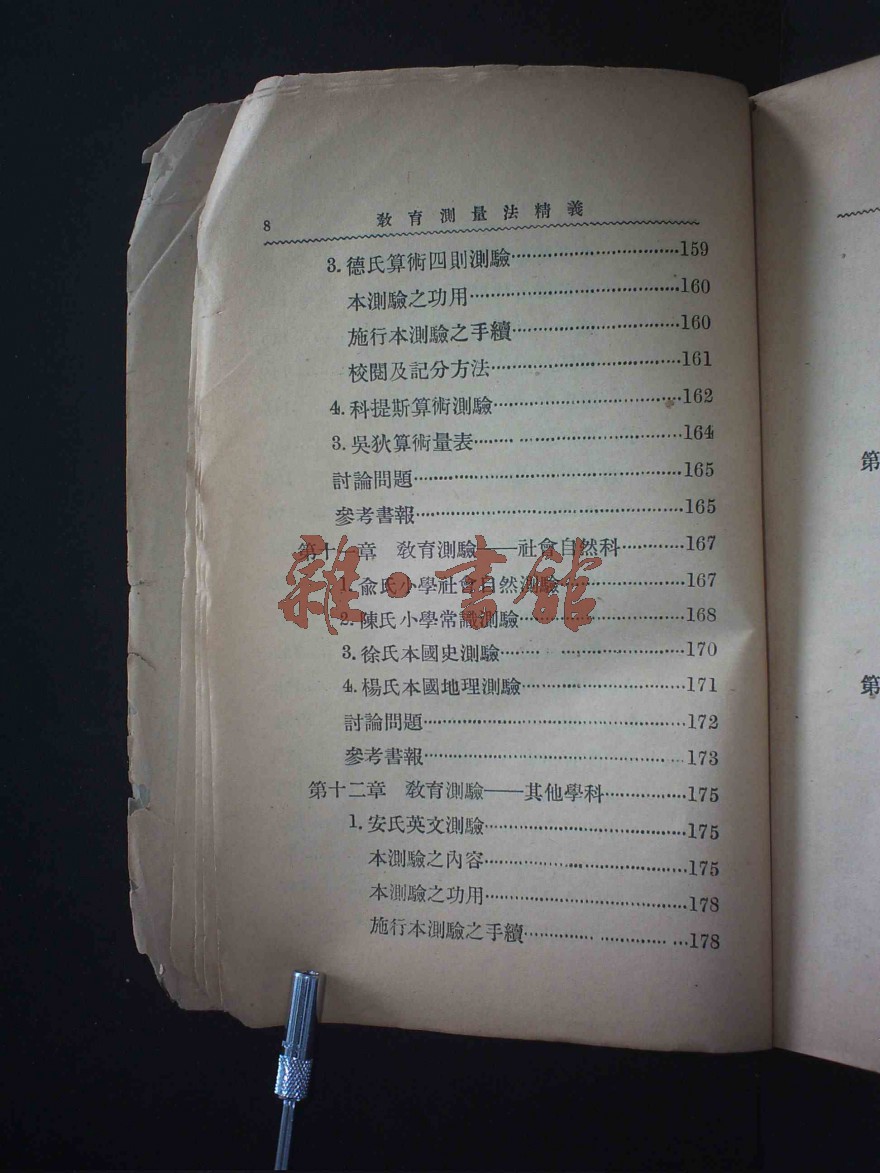 8 敎育測量法精義
3. 德氏算術四則測驗…………………………159
本測驗之功用…………………………160
施行本測驗之手續…………………………160
校閱及記分方法…………………………161
4. 科提斯算術測驗…………………………162
3. 吳狄算術量表…………………………164
討論問題…………………………165
參考書報…………………………165
第十一章 敎育測驗——社會自然科…………167
1. 俞氏小學社會自然測驗…………………167
2. 陳氏小學常識測驗…………………………168
3. 徐氏本國史測驗…………………………170
4. 楊氏本國地理測驗…………………………171
討論問題…………………………172
參考書報…………………………173
第十二章 敎育測驗——其他學科……………175
1. 安氏英文測驗…………………………175
本測驗之內容…………………………175
本測驗之功用…………………………178
施行本測驗之手續…………………………178
雜·書館
第
第